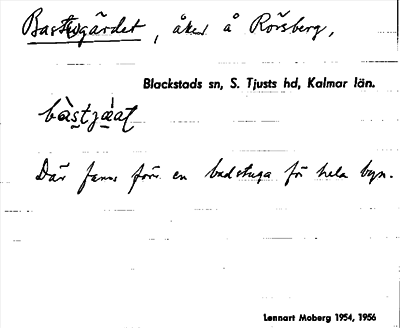 Bastugärdet, åker å Rörsberg,
Blackstads sn, S. Tjusts hd, Kalmar län.
Där fanns förr en badstuga för hela byn.
Lennart Moberg 1954, 1956